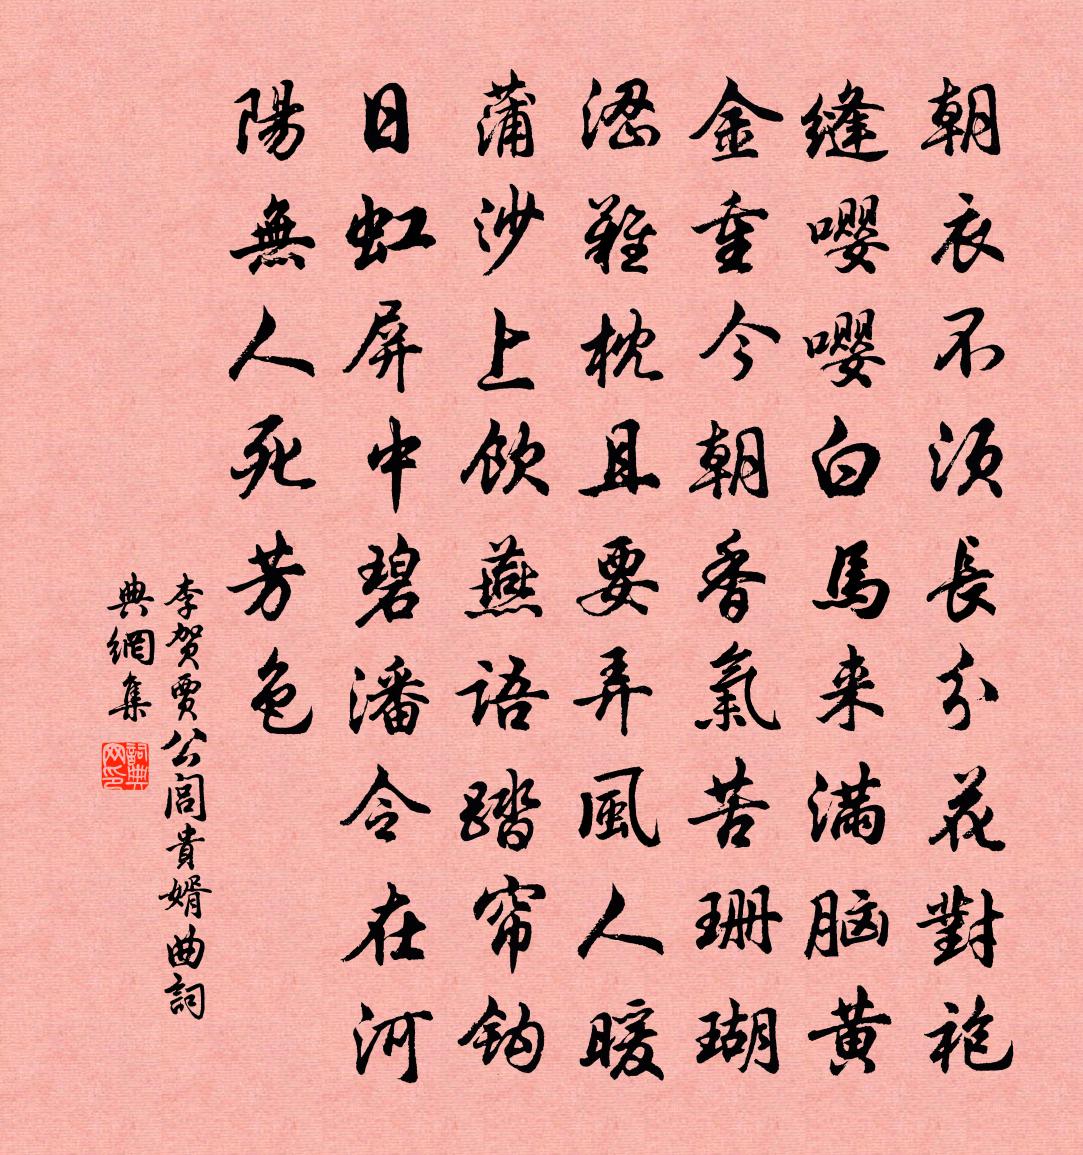 朝衣不須長分花對袍
縫嚶嚶白馬来滿脑黄
金重今朝香氣苦珊瑚
澀難枕且要弄風人暖
蒲沙上飲燕語踏帘鈎
日虹屏中碧潘令在河
陽無人死芳色
李賀賈公閭貴婿曲詞
典網集
詞典网印